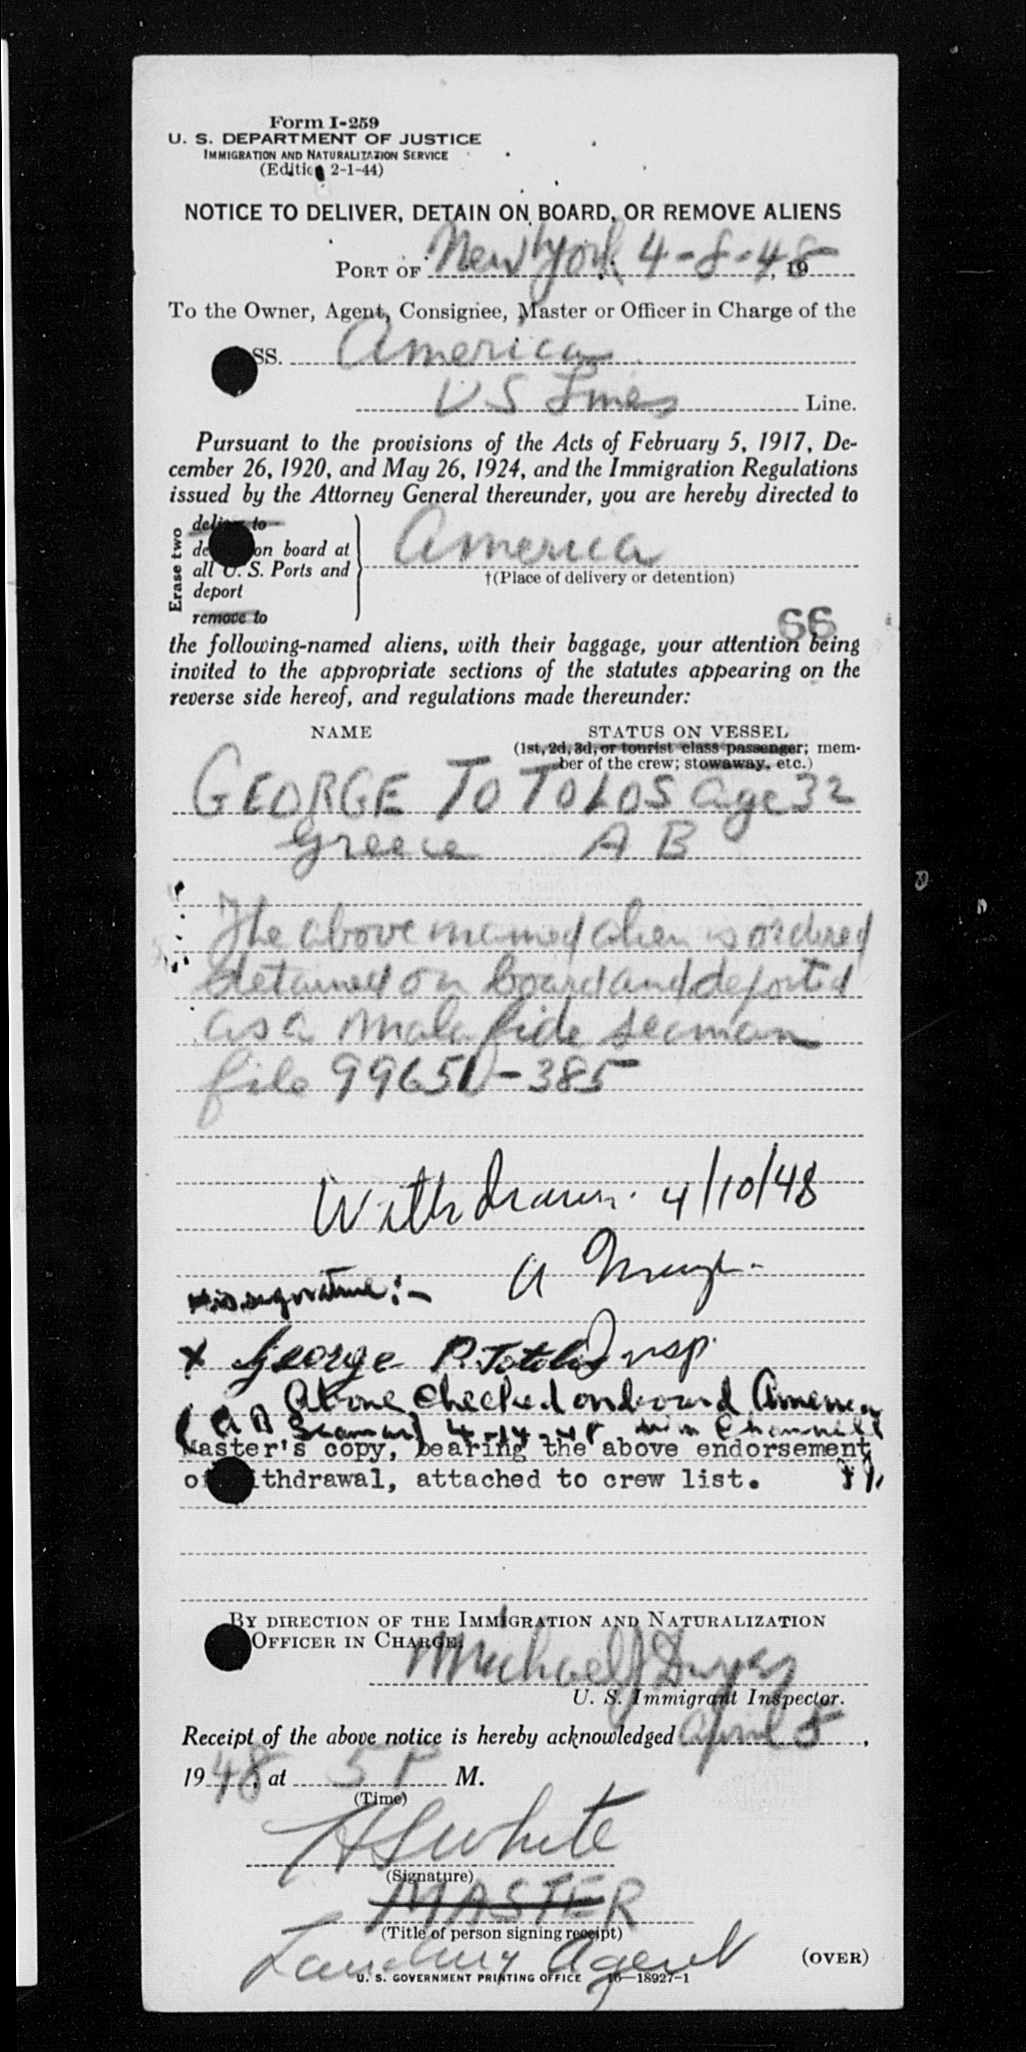 Form I-259
U. S. DEPARTMENT OF JUSTICE
IMMIGRATION AND NATURALIZATION SERVICE
(Edition 2-1-44)
NOTICE TO DELIVER, DETAIN ON BOARD, OR REMOVE ALIENS
PORT OF New York 4-8-48, 19
To the Owner, Agent, Consignee, Master or Officer in Charge of the
SS. America
US Lines Line.
Pursuant to the provisions of the Acts of February 5, 1917, De-
cember 26, 1920, and May 26, 1924, and the Immigration Regulations
issued by the Attorney General thereunder, you are hereby directed to
Erase two
deliver to
de on board at
all U. S. Ports and
deport
remove to
America
†(Place of delivery or detention)
66
the following-named aliens, with their baggage, your attention being
invited to the appropriate sections of the statutes appearing on the
reverse side hereof, and regulations made thereunder:
NAME STATUS ON VESSEL
(1st, 2d, 3d, or tourist class passenger; mem-
ber of the crew; stowaway, etc.)
GEORGE TOTOLOS age 32
Greece A B
The above named alien is ordered
detained on board and deported
as a mala fide seaman
file 99651-385
Withdrawn. 4/10/48
A
His signature:-
X George P. Totolos Insp.
Above checked on board America
(A B Seaman) 4-14-48
Master's copy, bearing the above endorsement
of withdrawal, attached to crew list.
BY DIRECTION OF THE IMMIGRATION AND NATURALIZATION
OFFICER IN CHARGE:
Michael J Dwyer
U. S. Immigrant Inspector.
Receipt of the above notice is hereby acknowledged April 8,
1948, at 5 P M.
(Time)
HS White
(Signature)
MASTER
(Title of person signing receipt)
Agent
(OVER)
U. S. GOVERNMENT PRINTING OFFICE 16—18927-1